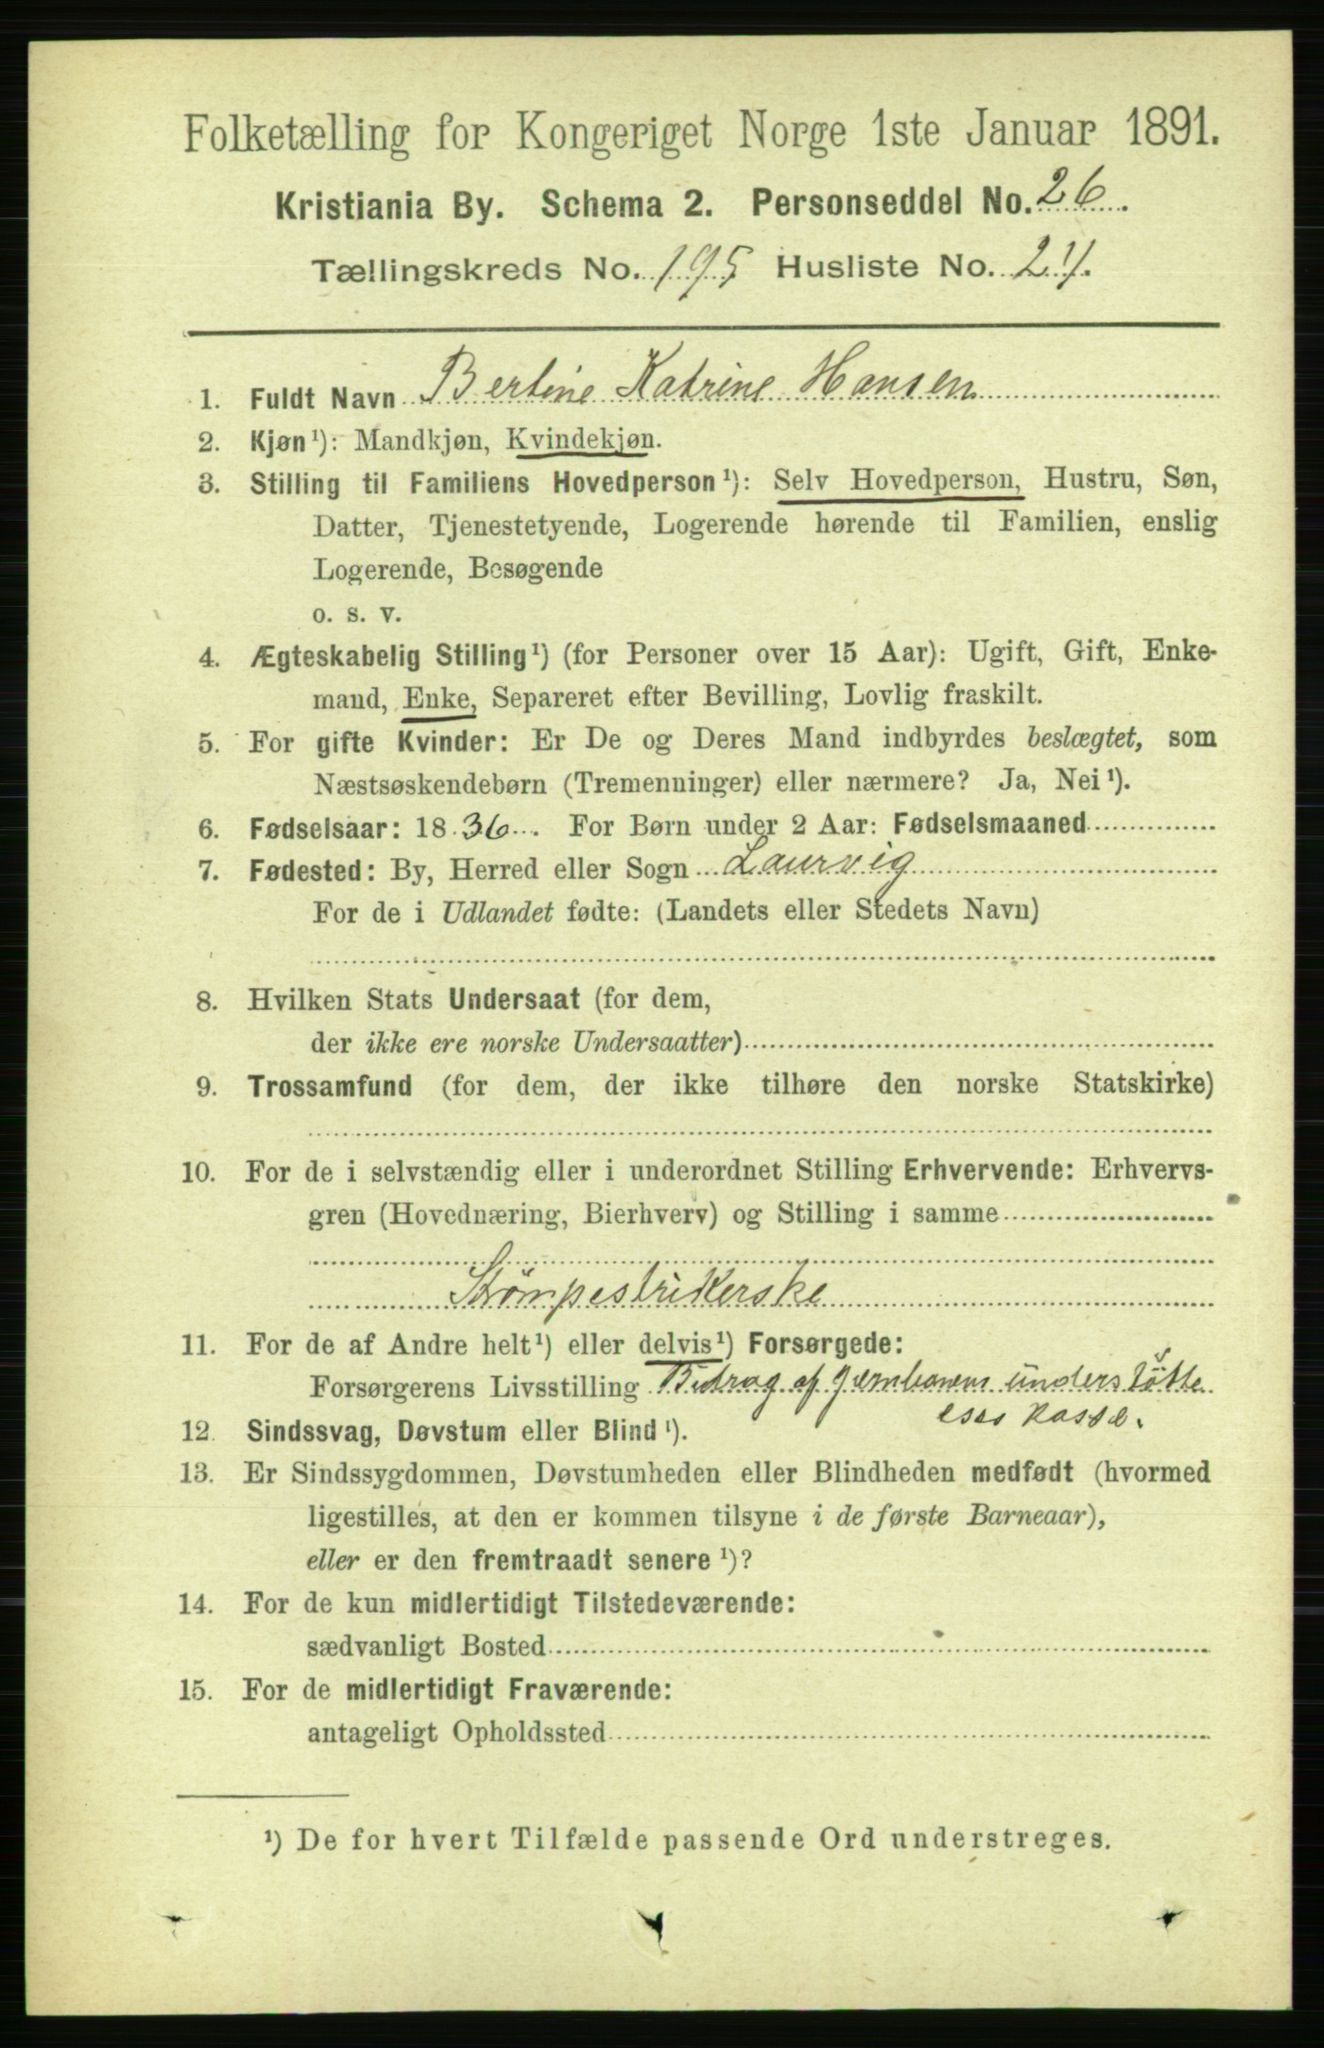 Folketælling for Kongeriget Norge 1ste Januar 1891.
Kristiania By. Schema 2. Personseddel No. 26.
Tællingskreds No. 195 Husliste No. 21.
1. Fuldt Navn Bertine Katrine Hansen
2. Kjøn ¹): Mandkjøn, Kvindekjøn.
3. Stilling til Familiens Hovedperson ¹): Selv Hovedperson, Hustru, Søn,
Datter, Tjenestetyende, Logerende hørende til Familien, enslig
Logerende, Besøgende
o. s. v.
4. Ægteskabelig Stilling ¹) (for Personer over 15 Aar): Ugift, Gift, Enke-
mand, Enke, Separeret efter Bevilling, Lovlig fraskilt.
5. For gifte Kvinder: Er De og Deres Mand indbyrdes beslægtet, som
Næstsøskendebørn (Tremenninger) eller nærmere? Ja, Nei ¹).
6. Fødselsaar: 1836. For Børn under 2 Aar: Fødselsmaaned
7. Fødested: By, Herred eller Sogn Laurvig
For de i Udlandet fødte: (Landets eller Stedets Navn)
8. Hvilken Stats Undersaat (for dem,
der ikke ere norske Undersaatter)
9. Trossamfund (for dem, der ikke tilhøre den norske Statskirke)
10. For de i selvstændig eller i underordnet Stilling Erhvervende: Erhvervs-
gren (Hovednæring, Bierhverv) og Stilling i samme
Strømpestrikerske
11. For de af Andre helt ¹) eller delvis ¹) Forsørgede:
Forsørgerens Livsstilling Bidrag af Jernbanens understøtte
eses kasse.
12. Sindssvag, Døvstum eller Blind ¹).
13. Er Sindssygdommen, Døvstumheden eller Blindheden medfødt (hvormed
ligestilles, at den er kommen tilsyne i de første Barneaar),
eller er den fremtraadt senere ¹)?
14. For de kun midlertidigt Tilstedeværende:
sædvanligt Bosted
15. For de midlertidigt Fraværende:
antageligt Opholdssted
¹) De for hvert Tilfælde passende Ord understreges.